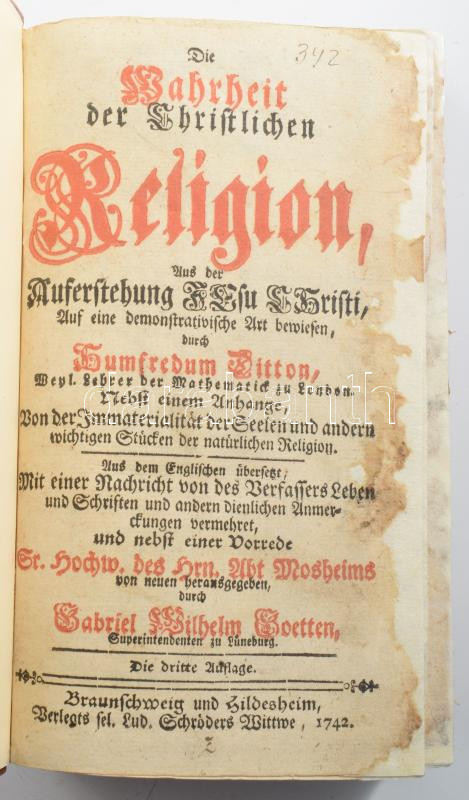 Die
342
Wahrheit
der Christlichen
Religion,
Aus der
Auferstehung JEsu CHristi,
Auf eine demonstrativische Art bewiesen,
durch
Humfredum Ditton,
Weyl. Lehrer der Mathematick zu London.
Nebst einem Anhange,
Von der Immaterialität der Seelen und andern
wichtigen Stücken der natürlichen Religion.
Aus dem Englischen übersetzt,
Mit einer Nachricht von des Verfassers Leben
und Schriften und andern dienlichen Anmer-
ckungen vermehret,
und nebst einer Vorrede
Sr. Hochw. des Hrn. Abt Mosheims
von neuen herausgegeben,
durch
Gabriel Wilhelm Goetten,
Superintendenten zu Lüneburg.
Die dritte Auflage.
Braunschweig und Hildesheim,
Verlegts sel. Lud. Schröders Wittwe, 1742.